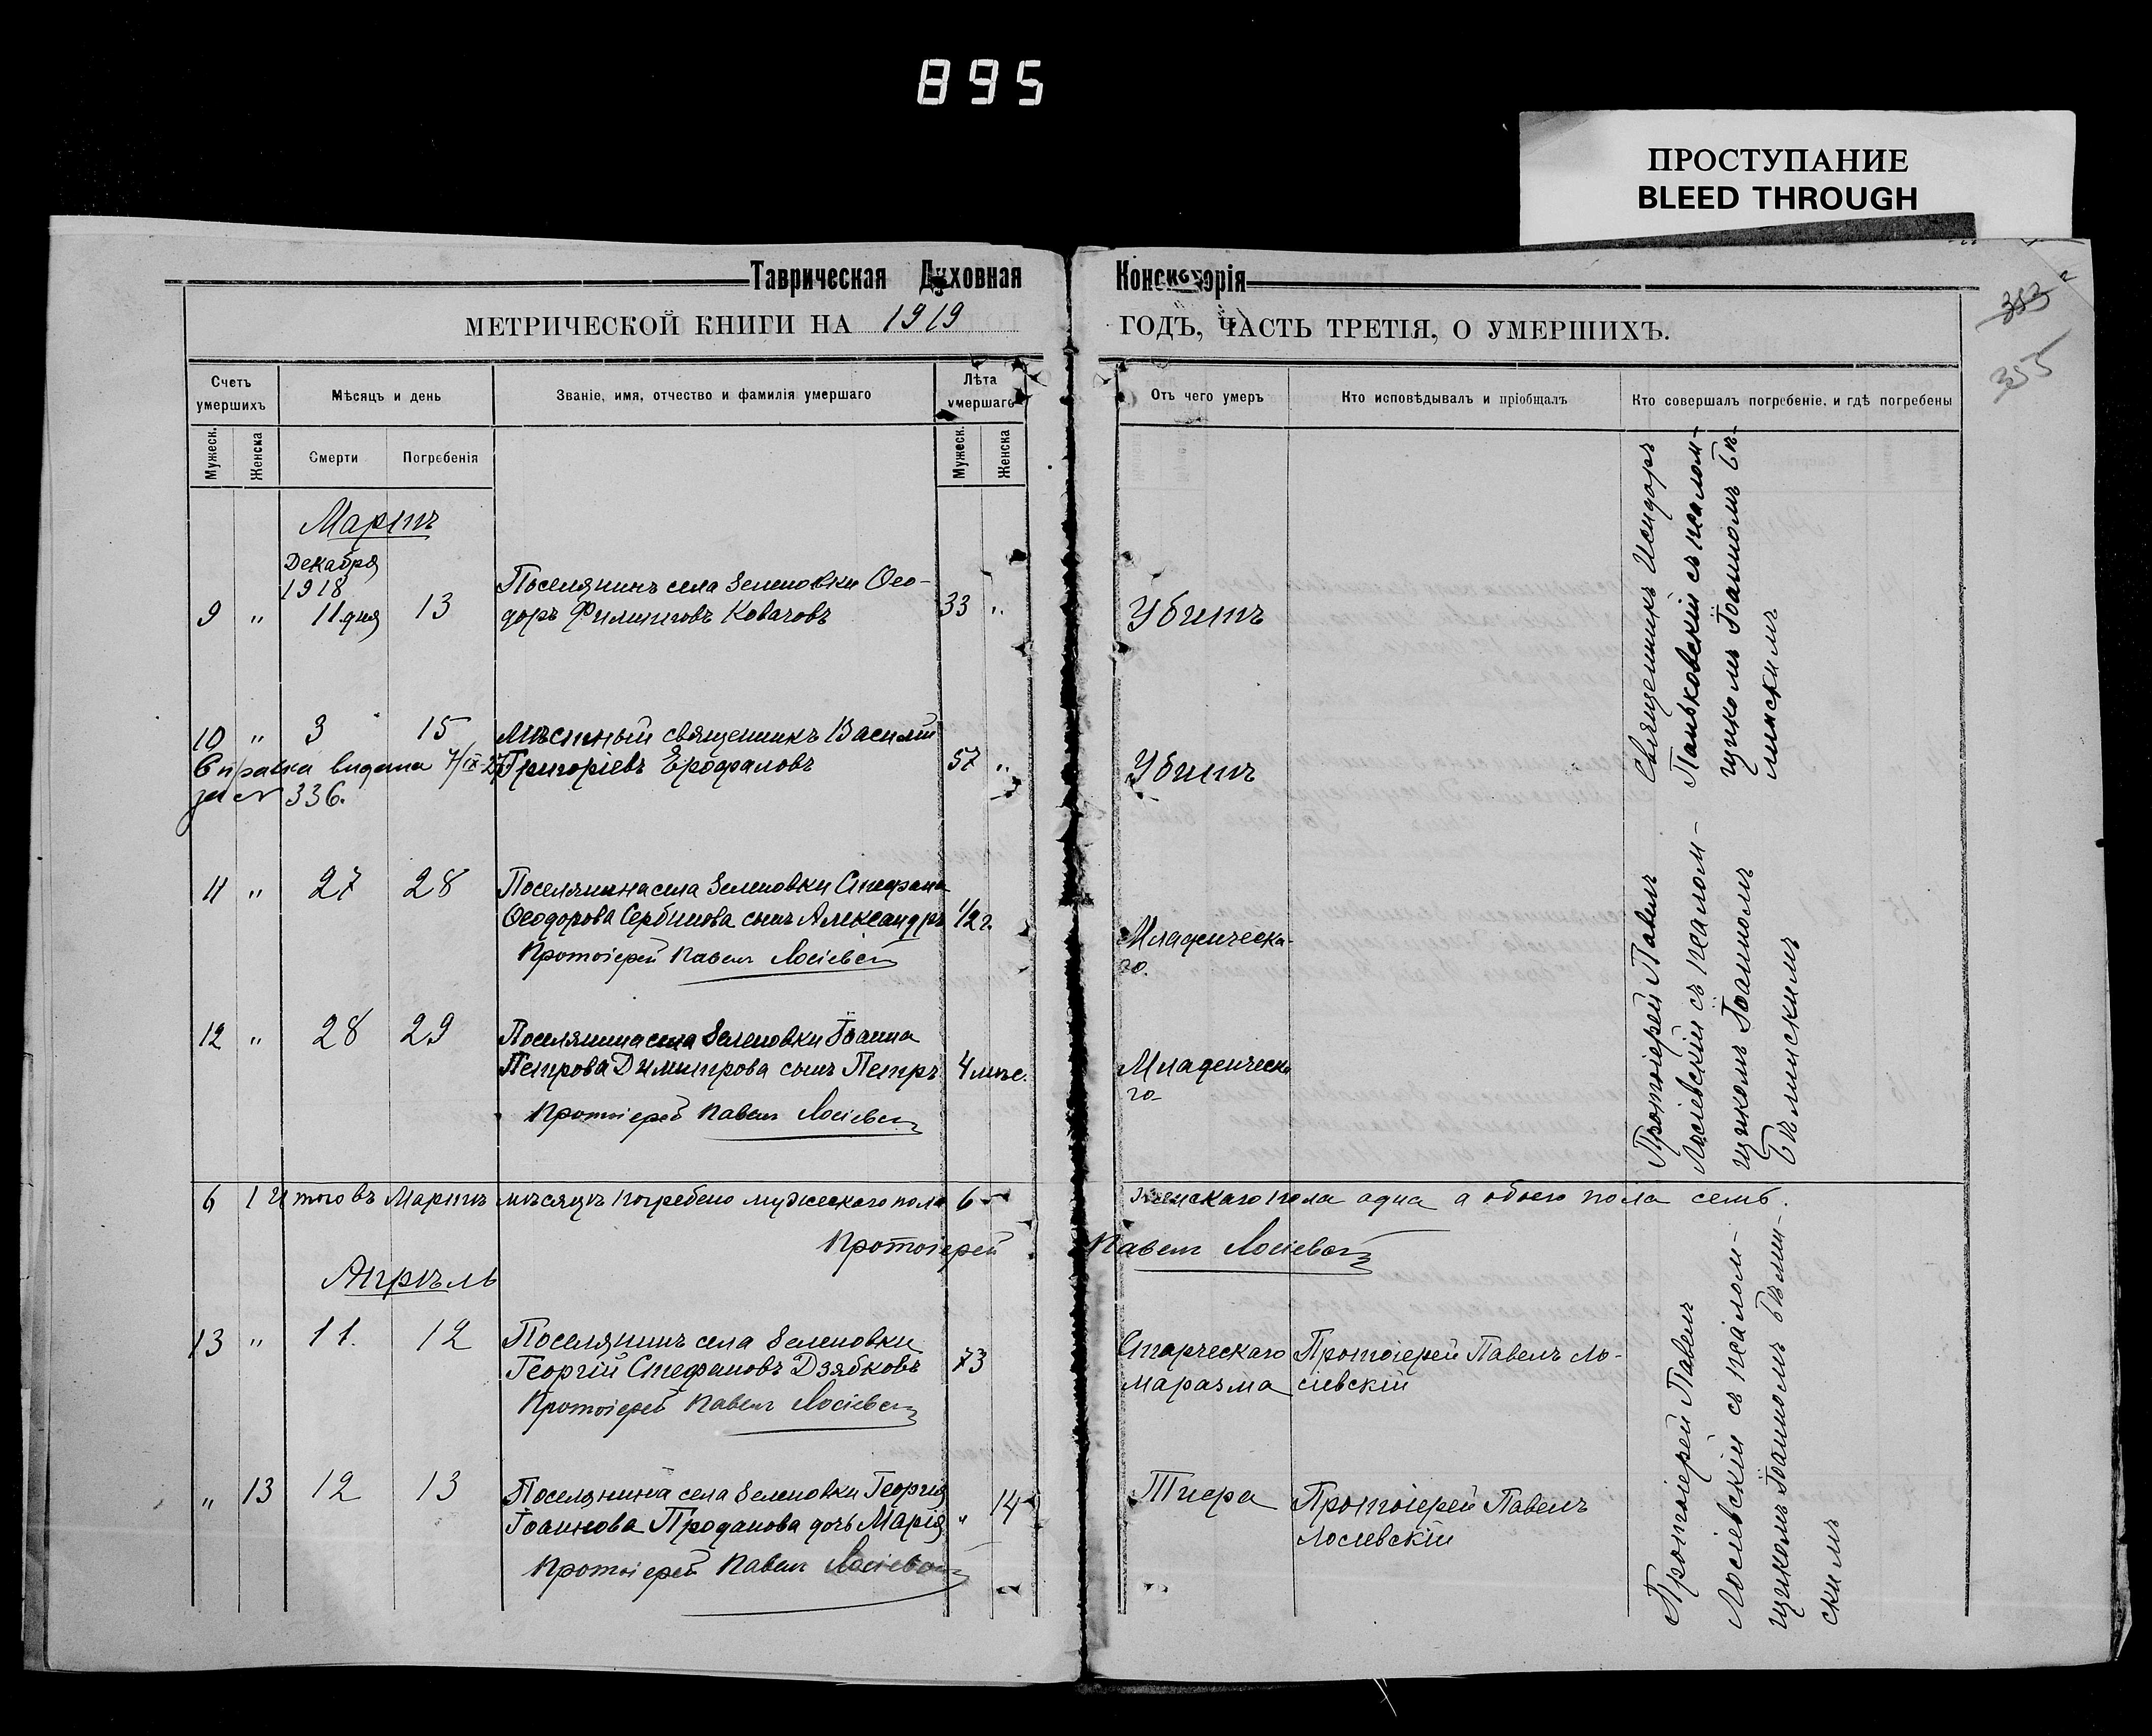 895
ПРОСТУПАНИЕ
BLEED THROUGH
Таврическая Духовная Консисторія
МЕТРИЧЕСКОЙ КНИГИ НА 1919 ГОДЪ, ЧАСТЬ ТРЕТІЯ, О УМЕРШИХЪ.
353
355
Счетъ умершихъ
Мѣсяцъ и день
Званіе, имя, отчество и фамилія умершаго
Лѣта умершаго
Отъ чего умеръ
Кто исповѣдывалъ и пріобщалъ
Кто совершалъ погребеніе, и гдѣ погребены
Мужеск. Женска Смерти Погребенія Мужеск. Женска
Мартъ
Декабря
1918
Поселянинъ села Зеленовки Ѳео-
9 " 11 дня 13 доръ Филипповъ Ковачовъ 33 " Убитъ
10 " 3 15 Мѣстный священникъ Василій
Справка видана 7/IX-27 Григоріевъ Ерофаловъ 57 " Убитъ
за № 336.
Священникъ Исидоръ
Паньковскій съ псалом-
щикомъ Іоанномъ Бѣ-
линскимъ
11 " 27 28 Поселянина села Зеленовки Стефана
Ѳеодорова Сербинова сынъ Александръ 1/2 г. Младенческа-
го
Протоіерей Павелъ Лосіевскій
12 " 28 29 Поселянина села Зеленовки Іоанна
Петрова Димитрова сынъ Петръ 4 мѣс. Младенческа
го
Протоіерей Павелъ Лосіевскій
Протоіерей Павелъ
Лосіевскій съ псалом-
щикомъ Іоанномъ
Бѣлинскимъ
6 1 Итого въ Мартѣ мѣсяцѣ погребено мужескаго пола 6 женскаго пола одна а обоего пола семь.
Протоіерей Павелъ Лосіевскій
Апрѣль
13 " 11. 12 Поселянинъ села Зеленовки Старческаго Протоіерей Павелъ Ло-
Георгій Стефановъ Дзябковъ 73 маразма сіевскій
Протоіерей Павелъ Лосіевскій
" 13 12 13 Поселянина села Зеленовки Георгія 14 Тифа Протоіерей Павелъ
Іоаннова Проданова дочь Марія " Лосіевскій
Протоіерей Павелъ Лосіевскій
Протоіерей Павелъ
Лосіевскій съ псалом-
щикомъ Іоанномъ Бѣлин-
скимъ